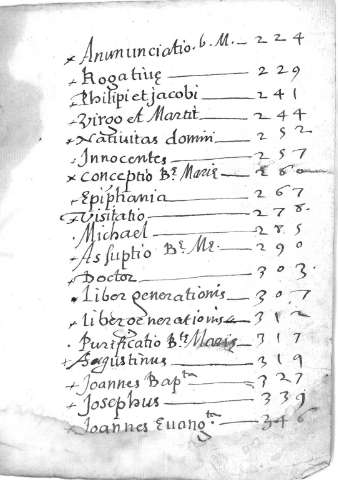 × Anunnunciatio. b. M. — 2 2 4
+ Rogatiuę — 2 2 9
+ Philipi et jacobi — 2 4 1
+ Virgo et Martit — 2 4 4
× Natiuitas domini — 2 5 2
Innocentes — 2 5 7
× Conceptio Bᵗᵉ Marię — 2 6 0
+ Epiphania — 2 6 7
Visitatio — 2 7 8.
· Michael — 2 8 5
+ Assuptio Bᵗᵉ Mᵉ. — 2 9 0
+ Doctor — 3 0 3.
· Liber generationis — 3 0 7
+ Liber generationis — 3 1 2
· Purificatio Bᵗᵉ Marię — 3 1 7
+ Augustinus — 3 1 9
+ Joannes Bapᵗᵃ — 3 2 7
+ Josephus — 3 3 9
+ Joannes Euangᵗᵃ — 3 4 6